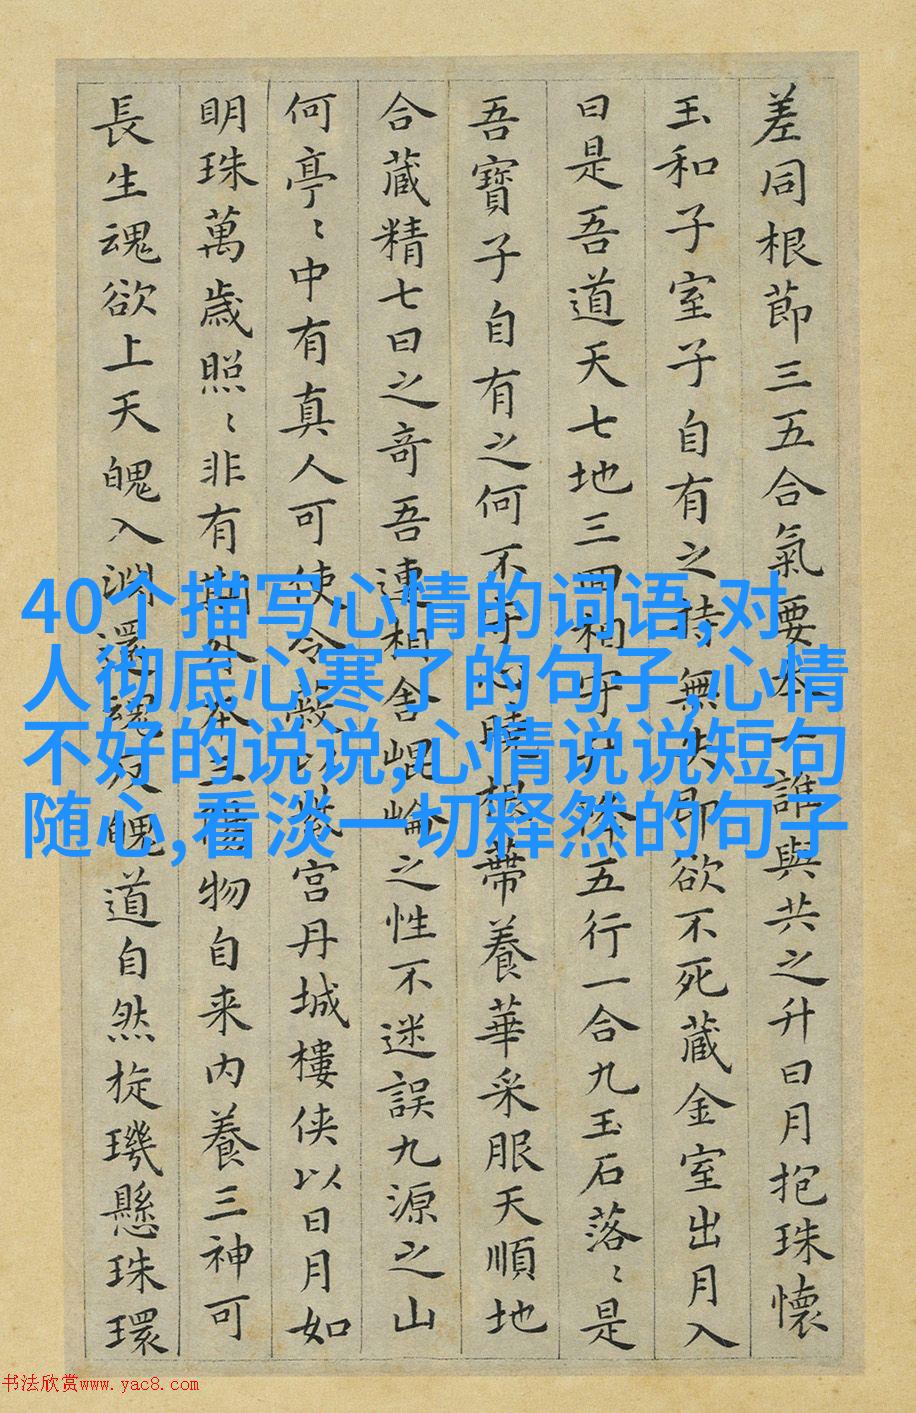 差同根節三五合氣要本一誰與共之升日月抱珠懷
玉和子室子自有之持無失即欲不死藏金室出月入
日是吾道天七地三回相守升降五行一合九玉石落〻是
吾寶子自有之何不守心曉根蒂養華采服天順地
合藏精七日之奇吾連相舍崐崘之性不迷誤九源之山
何亭〻中有真人可使令蔽以紫宮丹城樓俠以日月如
明珠萬歲照〻非有期外本三陽物自来内養三神可
長生魂欲上天魄入淵還魂反魄道自然旋璣懸珠環
40个描写心情的词语,对
人彻底心寒了的句子,心情
不好的说说,心情说说短句
随心,看淡一切释然的句子
书法欣赏www.yac8.com